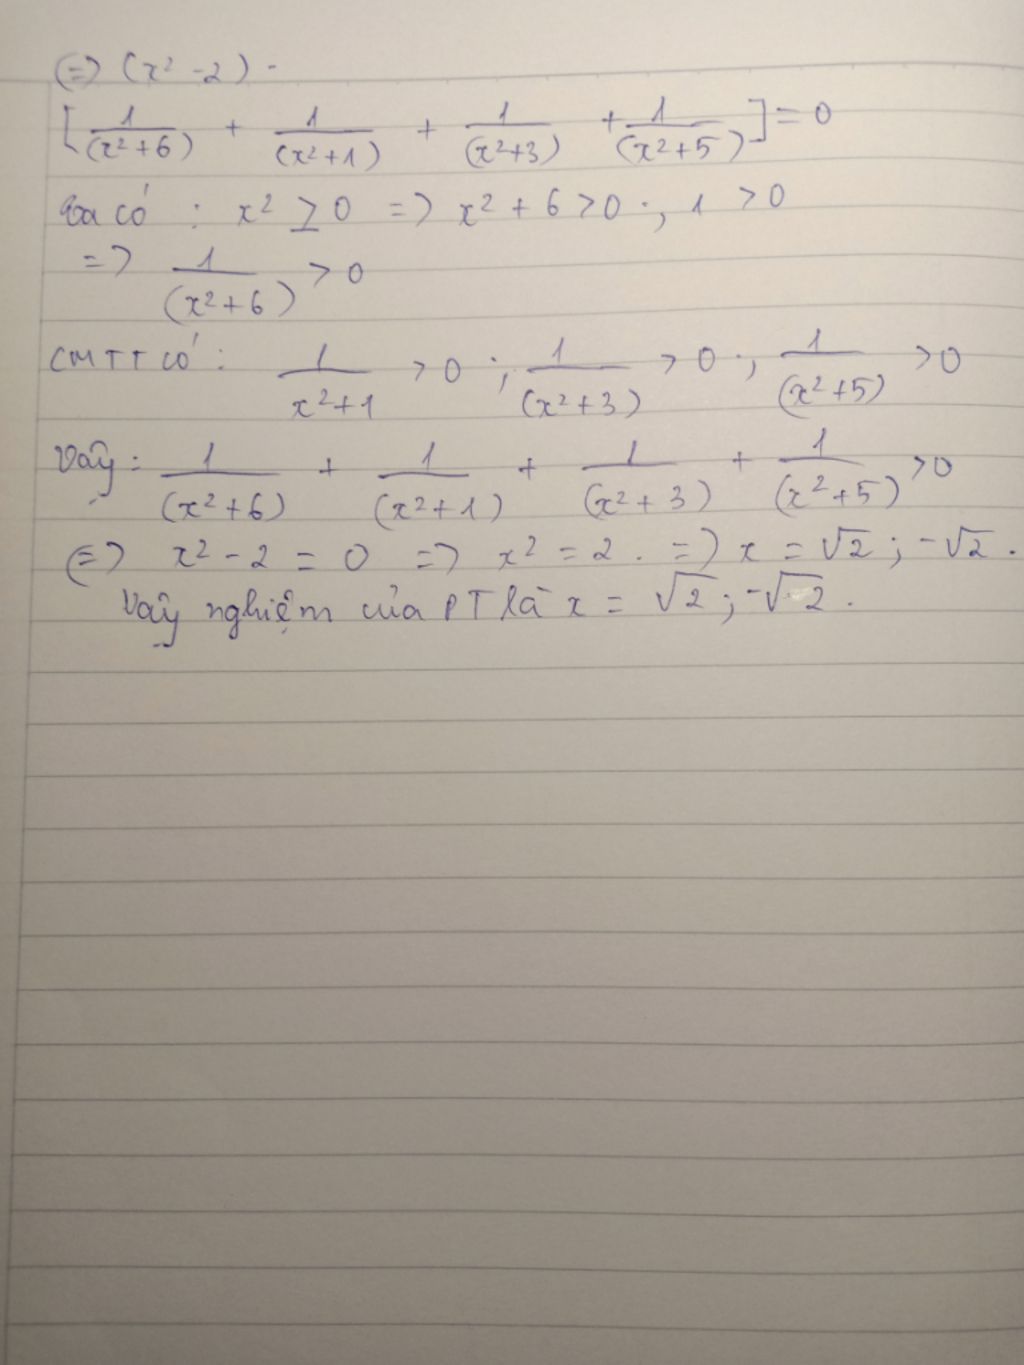 (=) (x² - 2) .
[1/(x²+6) + 1/(x²+1) + 1/(x²+3) + 1/(x²+5)] = 0
Ta có : x² ≥ 0 => x² + 6 > 0 ; 1 > 0
=> 1/(x²+6) > 0
CMTT có : 1/x²+1 > 0 ; 1/(x²+3) > 0 ; 1/(x²+5) > 0
Vậy : 1/(x²+6) + 1/(x²+1) + 1/(x²+3) + 1/(x²+5) > 0
(=) x² - 2 = 0 => x² = 2 . => x = √2 ; -√2 .
Vậy nghiệm của PT là x = √2 ; -√2 .